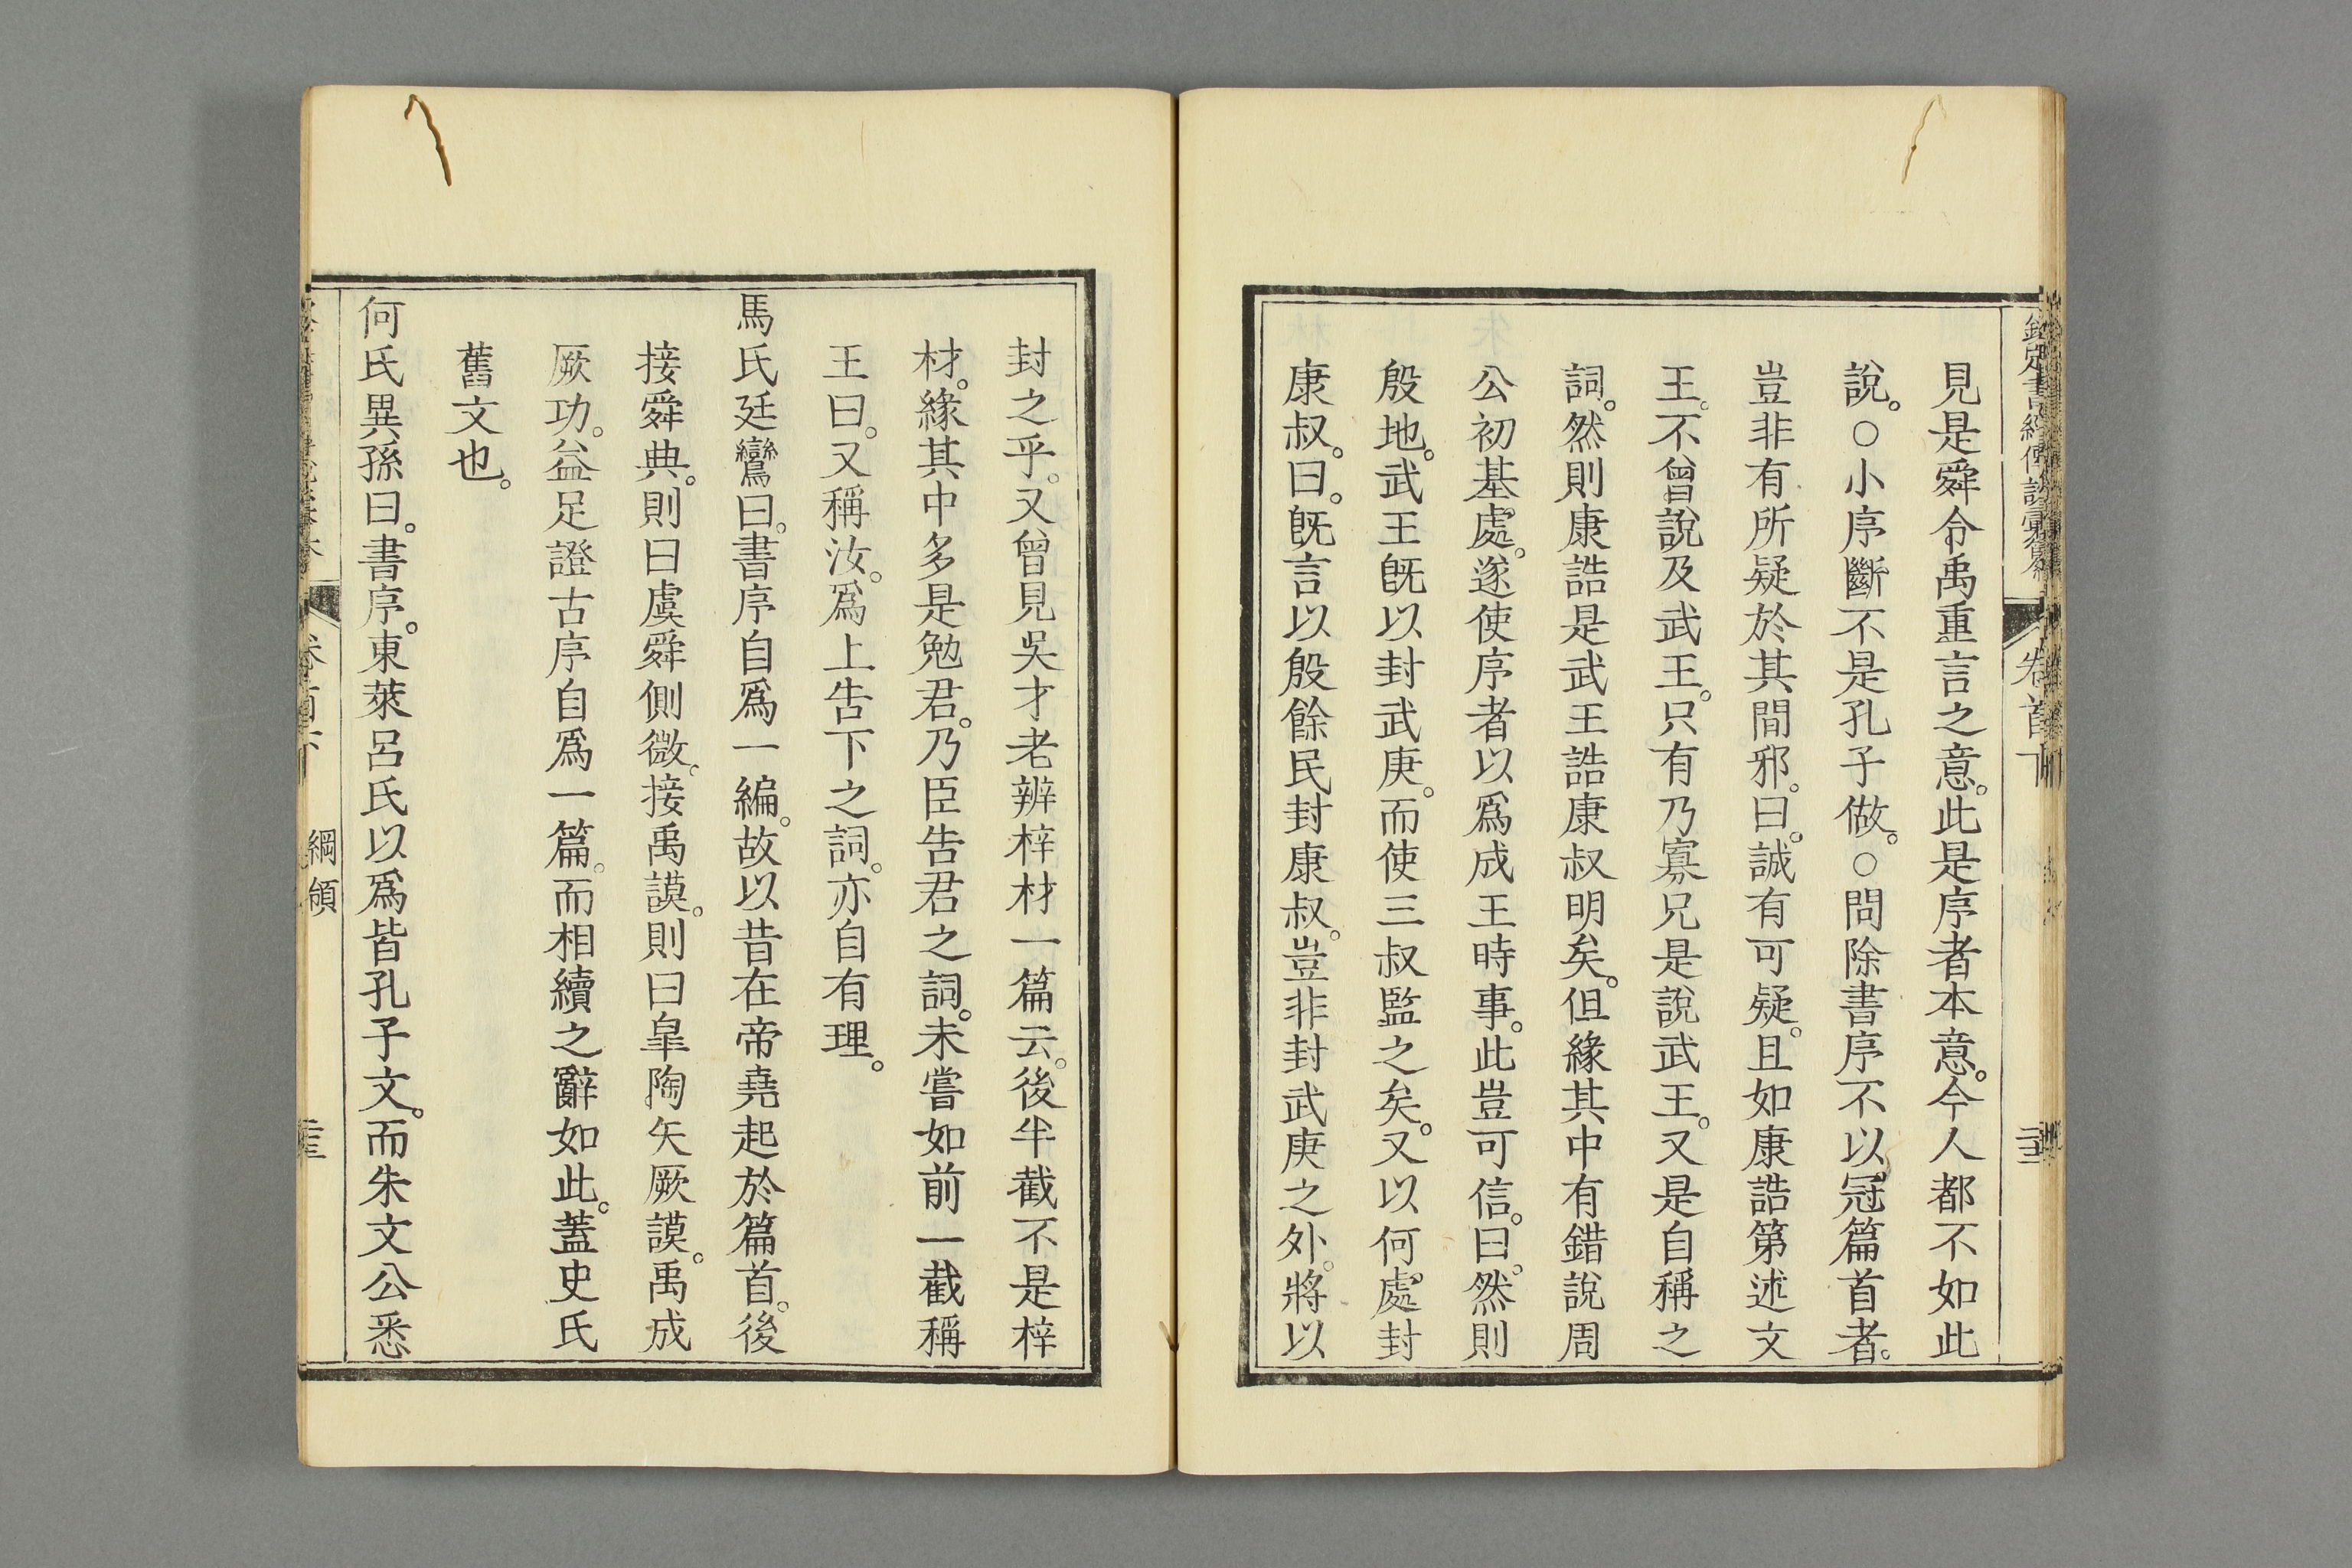 欽定書經傳說彙纂
卷首下
見是舜令禹重言之意。此是序者本意。今人都不如此
說。○小序斷不是孔子做。○問除書序不以冠篇首者。
豈非有所疑於其間邪。曰。誠有可疑。且如康誥第述文
王。不曾說及武王。只有乃寡兄是說武王。又是自稱之
詞。然則康誥是武王誥康叔明矣。但緣其中有錯說周
公初基處。遂使序者以爲成王時事。此豈可信。曰。然則
殷地。武王旣以封武庚。而使三叔監之矣。又以何處封
康叔。曰。旣言以殷餘民封康叔。豈非封武庚之外。將以
封之乎。又曾見吳才老辨梓材一篇云。後半截不是梓
材。緣其中多是勉君。乃臣告君之詞。未嘗如前一截稱
王曰。又稱汝。爲上告下之詞。亦自有理。
馬氏廷鸞曰。書序自爲一編。故以昔在帝堯起於篇首。後
接舜典。則曰虞舜側微。接禹謨。則曰皐陶矢厥謨。禹成
厥功。益足證古序自爲一篇。而相續之辭如此。蓋史氏
舊文也。
何氏異孫曰。書序。東萊呂氏以爲皆孔子文。而朱文公悉
卷首下
綱領